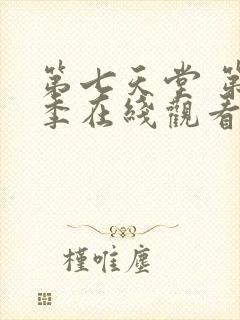 第七天堂 第
季在綫觀看
槿唯塵